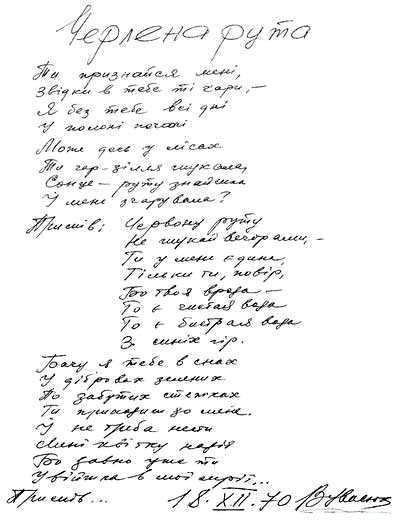 Червона рута
Ти признайся мені,
Звідки в тебе ті чари, –
Я без тебе всі дні
У полоні печалі
Може десь у лісах
Ти чар-зілля шукала,
Сонце – руту знайшла
У мене зчарувала?
Приспів: Червону руту
Не шукай вечорами, –
Ти у мене єдина,
Тільки ти, повір,
Бо твоя врода –
То є чистая вода
То є бистрая вода
З синіх гір.
Бачу я тебе в снах
У дібровах зелених
По забутих стежках
Ти приходиш до мене.
Й не треба нести
Мені квітку надій
Бо давно уже ти
Увійшла в мої мрії...
Приспів... 18.XII.70